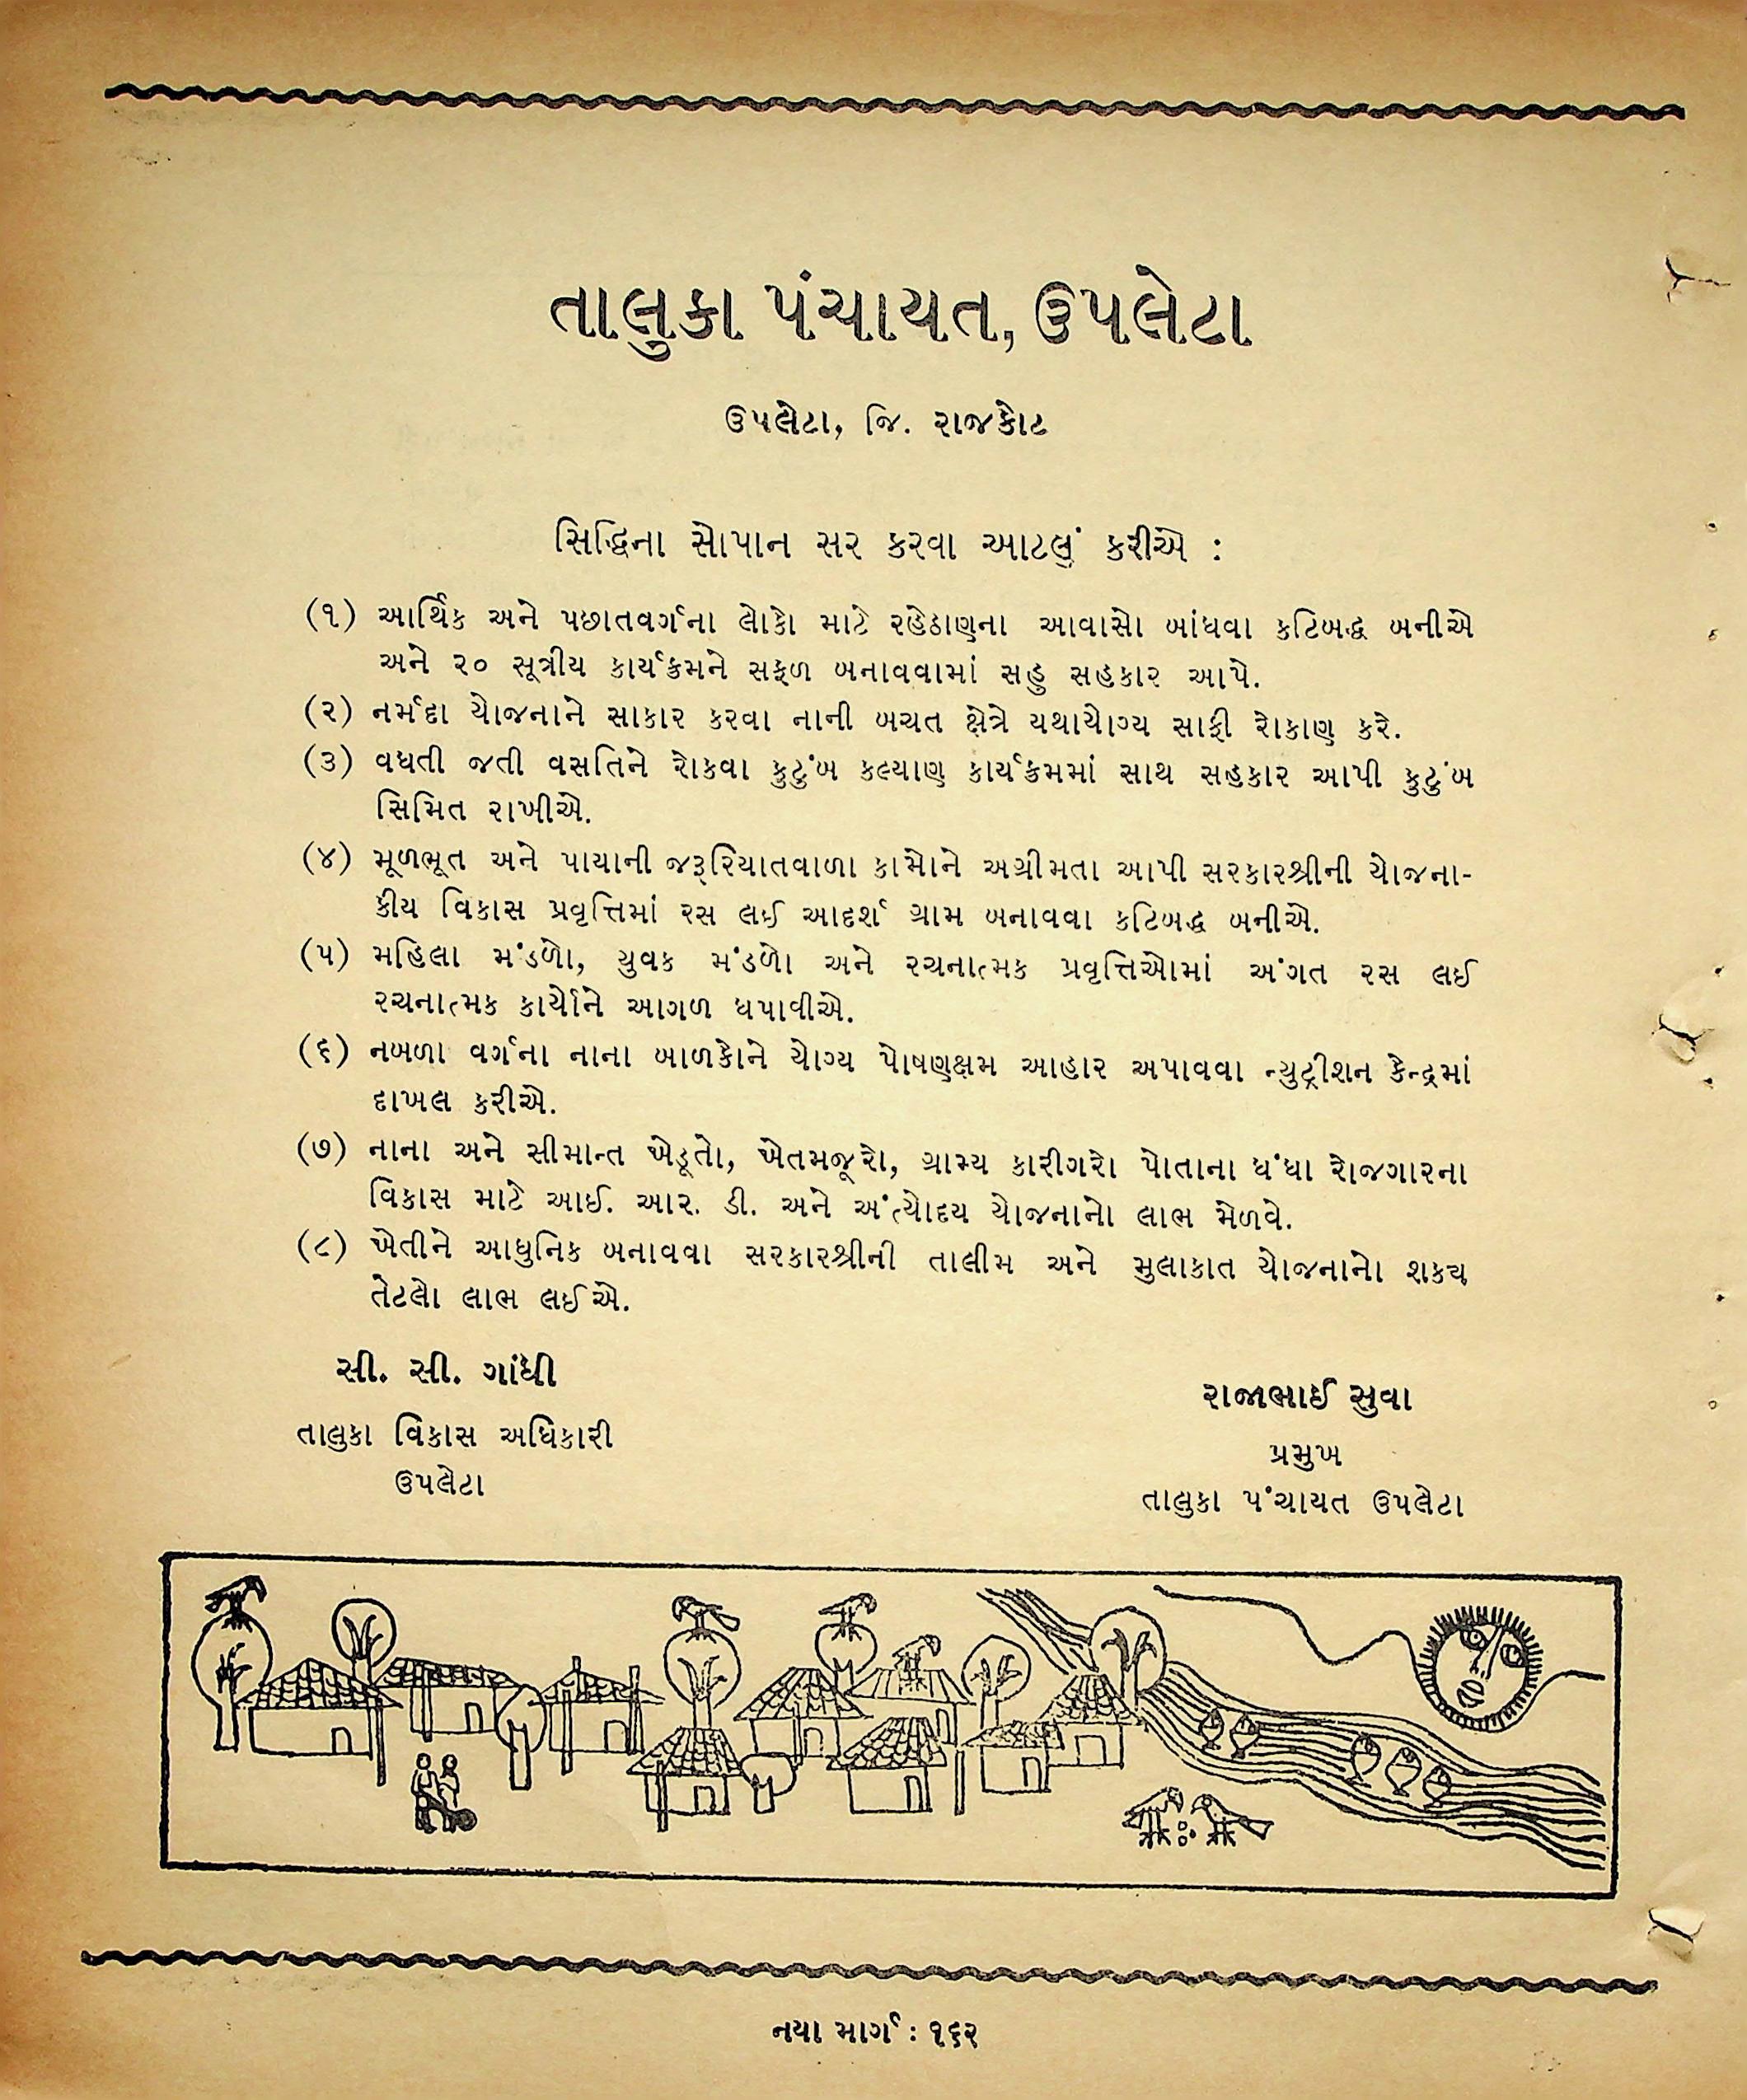 તાલુકા પંચાયત, ઉપલેટા
ઉપલેટા, જિ. રાજકોટ
સિદ્ધિના સોપાન સર કરવા આટલું કરીએ :
(૧) આર્થિક અને પછાતવર્ગના લોકો માટે રહેઠાણના આવાસો બાંધવા કટિબદ્ધ બનીએ
અને ૨૦ સૂત્રીય કાર્યક્રમને સફળ બનાવવામાં સહુ સહકાર આપે.
(૨) નર્મદા યોજનાને સાકાર કરવા નાની બચત ક્ષેત્રે યથાયોગ્ય સાફી રોકાણ કરે.
(૩) વધતી જતી વસતિને રોકવા કુટુંબ કલ્યાણ કાર્યક્રમમાં સાથ સહકાર આપી કુટુંબ
સિમિત રાખીએ.
(૪) મૂળભૂત અને પાયાની જરૂરિયાતવાળા કામોને અગ્રીમતા આપી સરકારશ્રીની યોજના-
કીય વિકાસ પ્રવૃત્તિમાં રસ લઈ આદર્શ ગ્રામ બનાવવા કટિબદ્ધ બનીએ.
(૫) મહિલા મંડળો, યુવક મંડળો અને રચનાત્મક પ્રવૃત્તિઓમાં અંગત રસ લઈ
રચનાત્મક કાર્યોને આગળ ધપાવીએ.
(૬) નબળા વર્ગના નાના બાળકોને યોગ્ય પોષણક્ષમ આહાર અપાવવા ન્યુટ્રીશન કેન્દ્રમાં
દાખલ કરીએ.
(૭) નાના અને સીમાન્ત ખેડૂતો, ખેતમજૂરો, ગ્રામ્ય કારીગરો પોતાના ધંધા રોજગારના
વિકાસ માટે આઈ. આર. ડી. અને અંત્યોદય યોજનાનો લાભ મેળવે.
(૮) ખેતીને આધુનિક બનાવવા સરકારશ્રીની તાલીમ અને મુલાકાત યોજનાનો શકય
તેટલો લાભ લઈએ.
સી. સી. ગાંધી
તાલુકા વિકાસ અધિકારી
ઉપલેટા
રાજાભાઈ સુવા
પ્રમુખ
તાલુકા પંચાયત ઉપલેટા
નયા માર્ગ : ૧૬૨